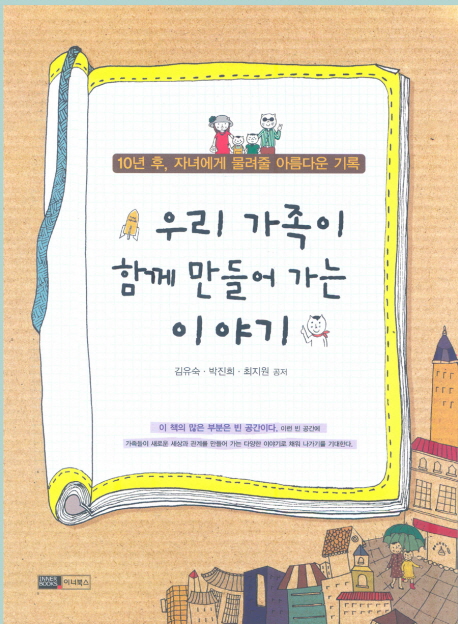 10년 후, 자녀에게 물려줄 아름다운 기록
우리 가족이
함께 만들어 가는
이야기
김유숙 · 박진희 · 최지원 공저
이 책의 많은 부분은 빈 공간이다. 이런 빈 공간에
가족들이 새로운 세상과 관계를 만들어 가는 다양한 이야기로 채워 나가기를 기대한다.
INNER BOOKS 이너북스